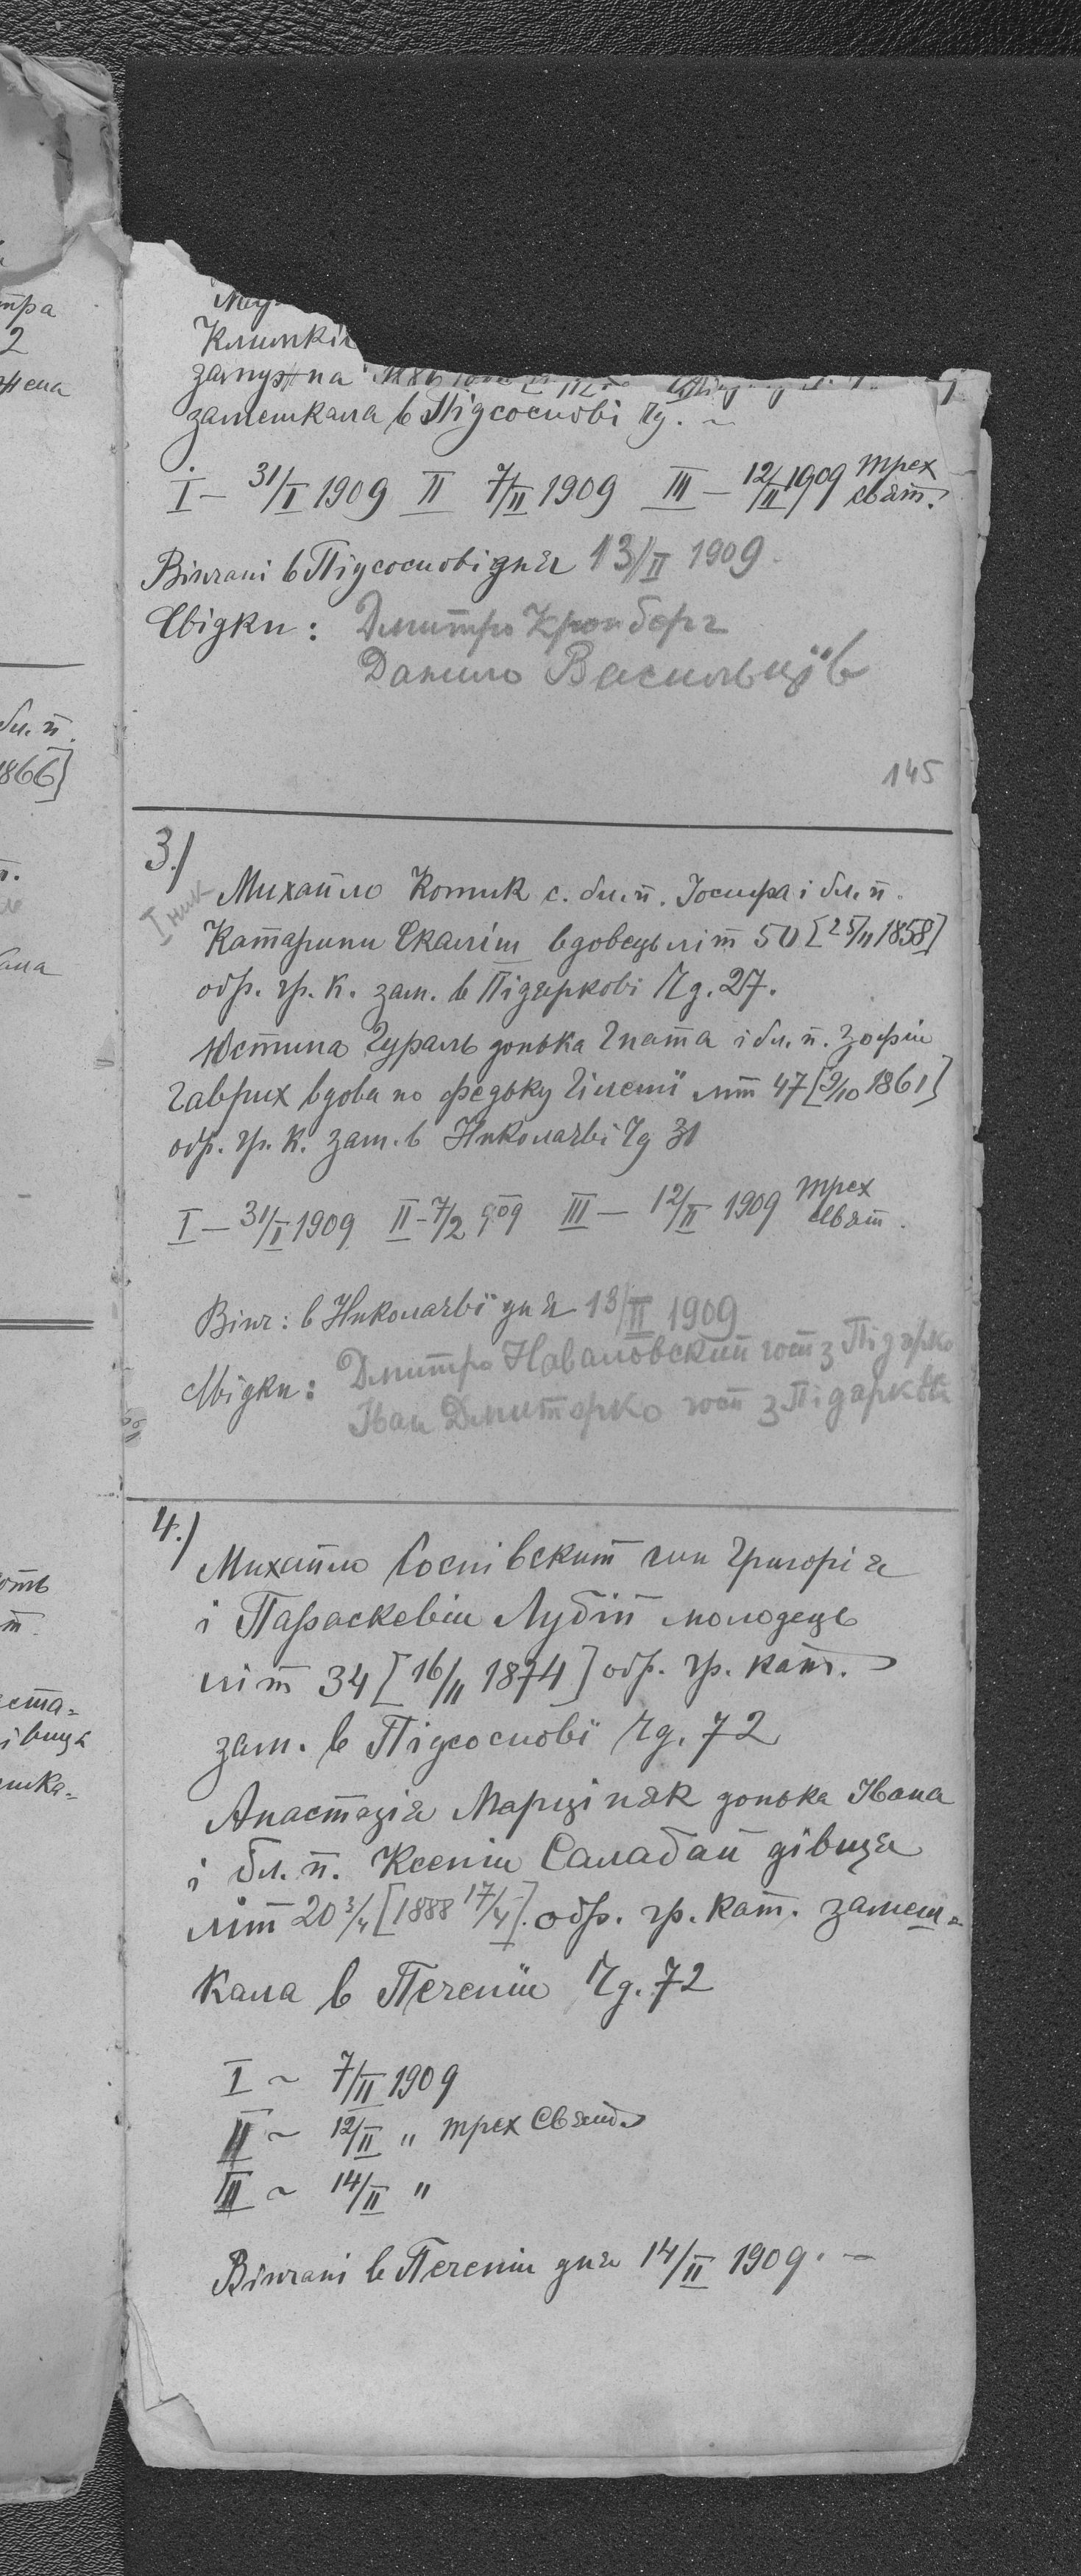 тра
2
жена
бл. п.
1866]
Климкі
замужна
замешкала в Підсоснові Чд. ~
I – 31/I 1909 II 7/II 1909 III – 12/II 1909 трех свят.
Вінчані в Підсоснові дня 13/II 1909.
Свідки: Дмитро Кронберг
Данило Васильців
145
3.)
I ник
Михайло Котик с. бл. п. Іосифа і бл. п.
Катарини Скаліш вдовець літ 50 [25/11 1858]
обр. гр. к. зам. в Підяркові Чд. 27.
Юстина Гураль донька Гната і бл. п. Зофіи
Гаврих вдова по Федьку літ 47 [9/10 1861]
обр. гр. к. зам. в Николаєві Чд 31
I – 31/I 1909 II – 7/2 909 III – 12/II 1909 трех свят.
Вінч: в Николаєві дня 13/II 1909
Свідки: Дмитро Навальовский госп з Підярко
Іван Дмитерко госп з Підяркова
4.)
Михайло Соснівский син Григорія
і Параскевіи Лубій молодець
літ 34 [16/11 1874] обр. гр. кат.
зам. в Підсоснові Чд. 72
Анастазія Марціняк донька Івана
і бл. п. Ксеніи Салабай дівиця
літ 20 3/4 [1888 17/4]. обр. гр. кат. замеш=
кала в Печеніи Чд. 72
I ~ 7/II 1909
II ~ 12/II " трех Свят.
III ~ 14/II "
Вінчані в Печеніи дня 14/II 1909. –